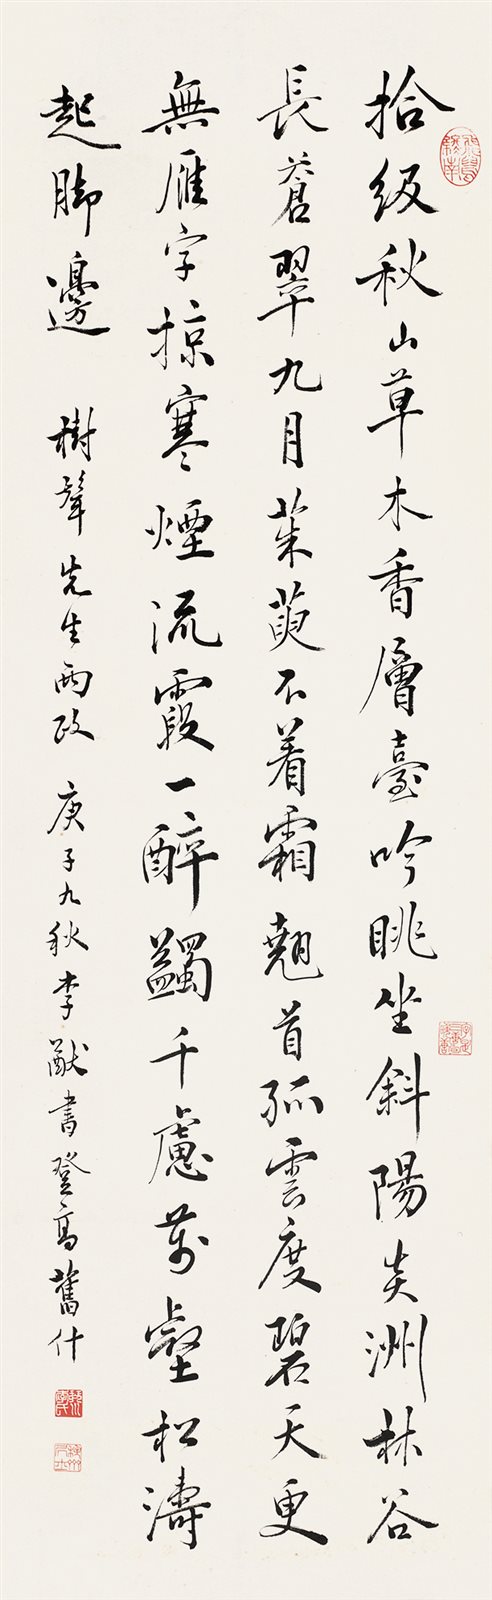 拾級秋山草木香層臺吟眺坐斜陽炎洲林谷
長蒼翠九月茱萸不着霜翹首孤雲度碧天更
無雁字掠寒煙流霞一醉蠲千慮萬壑松濤
起脚邊 樹聲先生兩政 庚子九秋李猷書登高舊什